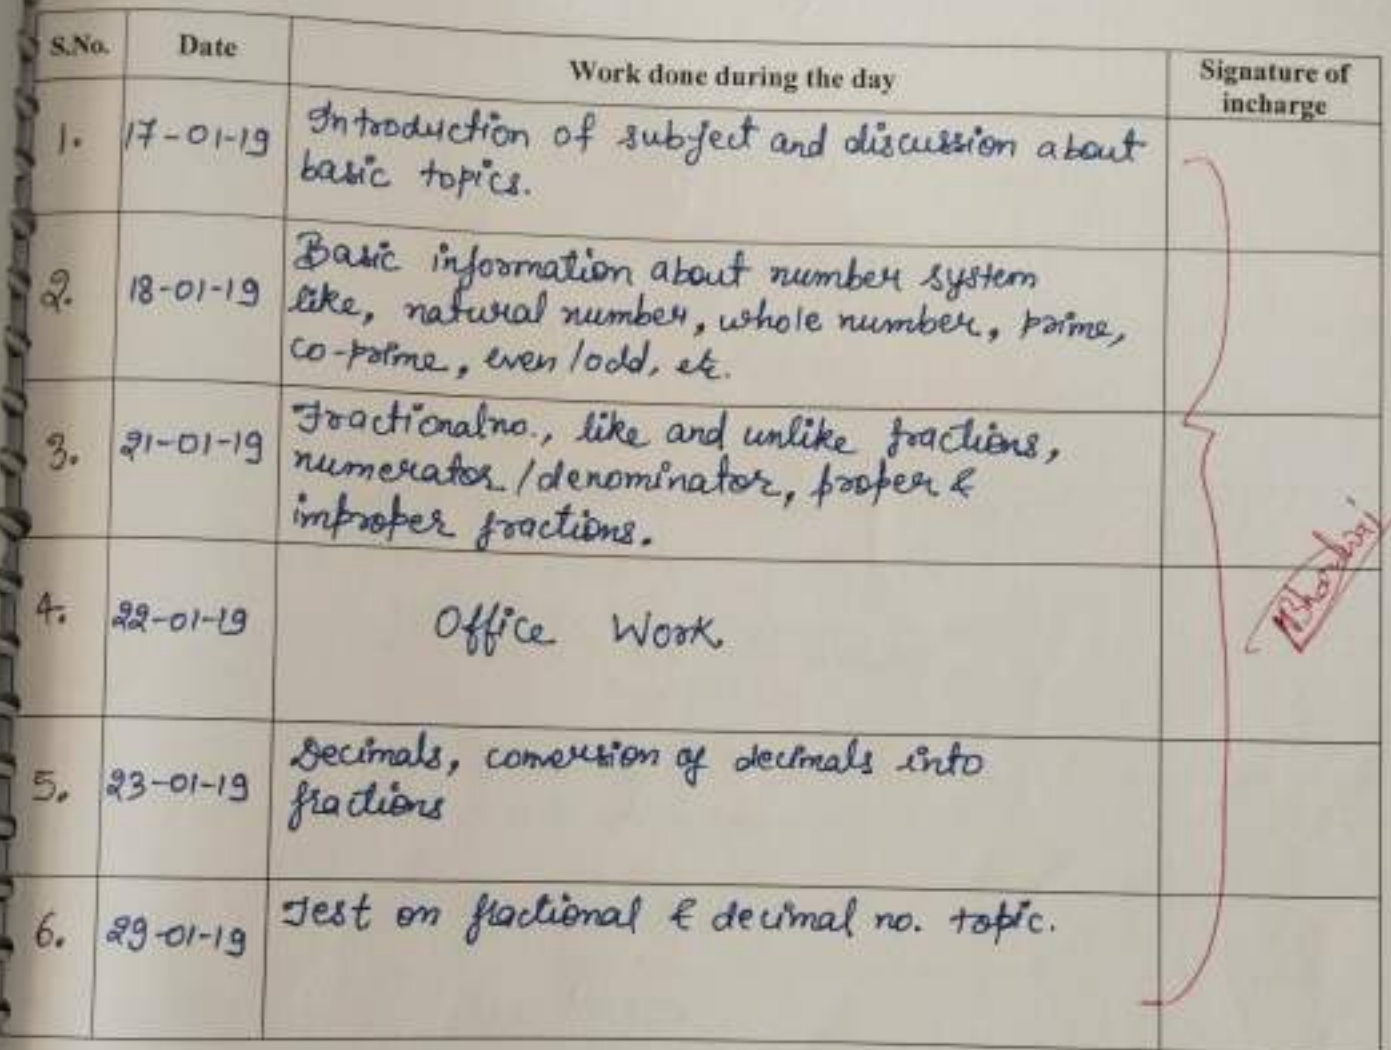 S.No. Date Work done during the day Signature of
incharge
1. 17-01-19 Introduction of subject and discussion about
basic topics.
2. 18-01-19 Basic information about number system
like, natural number, whole number, prime,
co-prime, even/odd, etc.
3. 21-01-19 Fractional no., like and unlike fractions,
numerator/denominator, proper &
improper fractions.
4. 22-01-19 Office Work
5. 23-01-19 Decimals, conversion of decimals into
fractions
6. 29-01-19 Test on fractional & decimal no. topic.